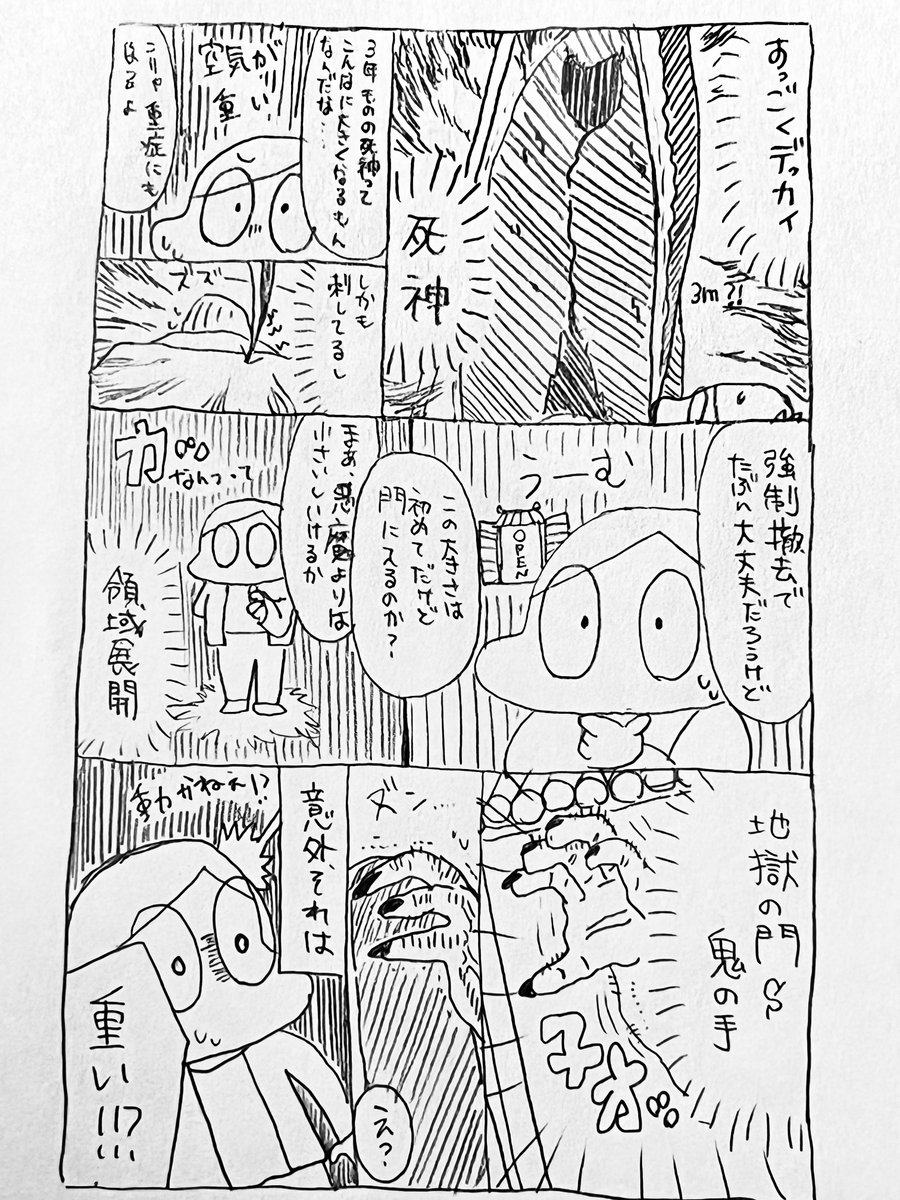 すっごくデッカイ
3m?!
死神
3年ものの死神って
こんなに大きくなるもん
なんだな…
空気が
重い
こりゃ重症にも
なるよ
しかも
刺してるし
ズズ
強制撤去で
たぶん大丈夫だろうけど
うーむ
OPEN
この大きさは
初めてだけど
門に入るのか?
まあ、悪魔よりは
小さいしいけるか
なんつって
領域展開
地獄の門&
鬼の手
ダン…
え?
意外それは
動かねえ!?
重い!!?